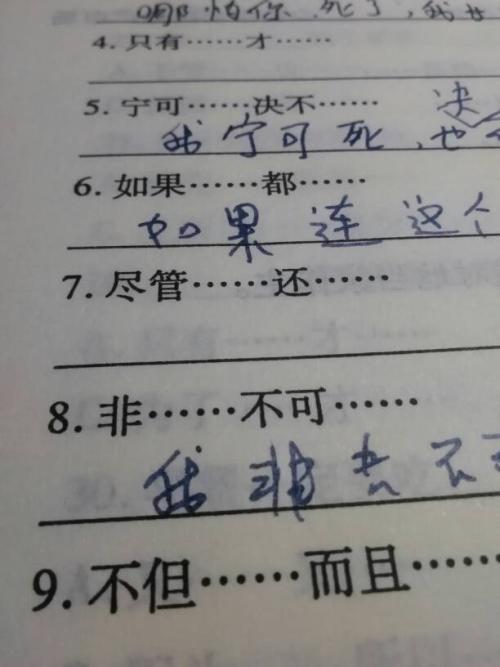 哪怕你死了,我
4. 只有……才……
5. 宁可……决不…… 决
我宁可死,也
6. 如果……都……
如果连这个
7. 尽管……还……
8. 非……不可……
我非去不可
9. 不但……而且……